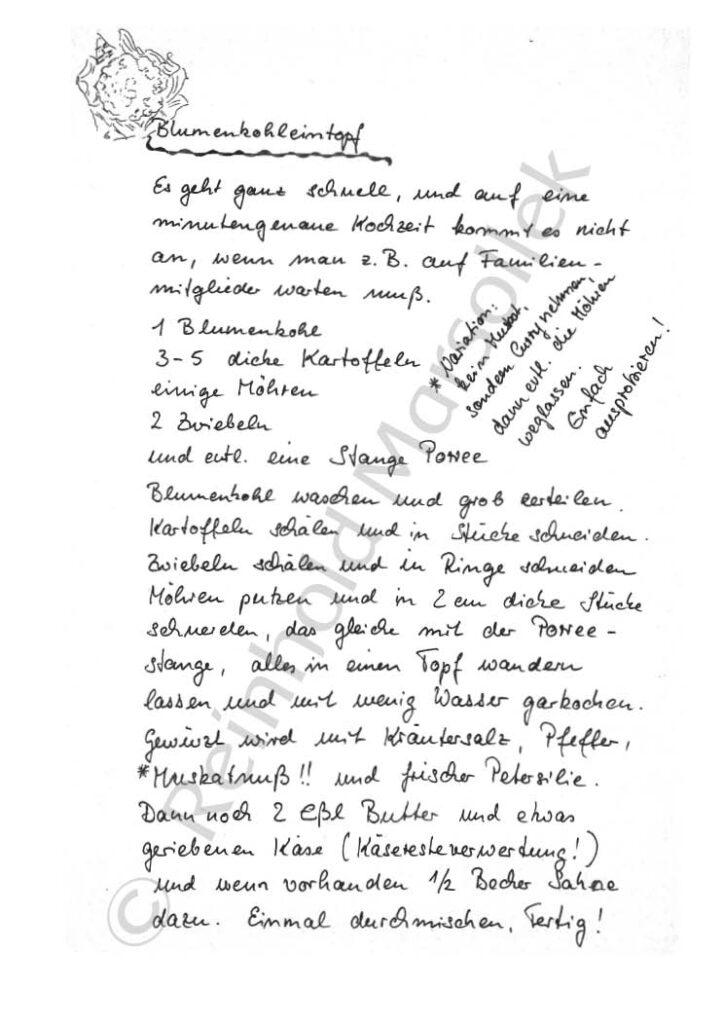 Blumenkohleintopf
Es geht ganz schnell, und auf eine
minutengenaue Kochzeit kommt es nicht
an, wenn man z.B. auf Familien-
mitglieder warten muß.
1 Blumenkohl
3-5 dicke Kartoffeln
einige Möhren
2 Zwiebeln
und evtl. eine Stange Porree
* Variation:
kein Muskat,
sondern Curry nehmen,
dann evtl. die Möhren
weglassen.
Einfach
ausprobieren!
Blumenkohl waschen und grob zerteilen.
Kartoffeln schälen und in Stücke schneiden.
Zwiebeln schälen und in Ringe schneiden
Möhren putzen und in 2 cm dicke Stücke
schneiden, das gleiche mit der Porree-
stange, alles in einen Topf wandern
lassen und mit wenig Wasser garkochen.
Gewürzt wird mit Kräutersalz, Pfeffer,
*Muskatnuß!! und frischer Petersilie.
Dann noch 2 Eßl Butter und etwas
geriebenen Käse (Käseresteverwertung!)
und wenn vorhanden 1/2 Becher Sahne
dazu. Einmal durchmischen, Fertig!
© Reinhold Marsollek